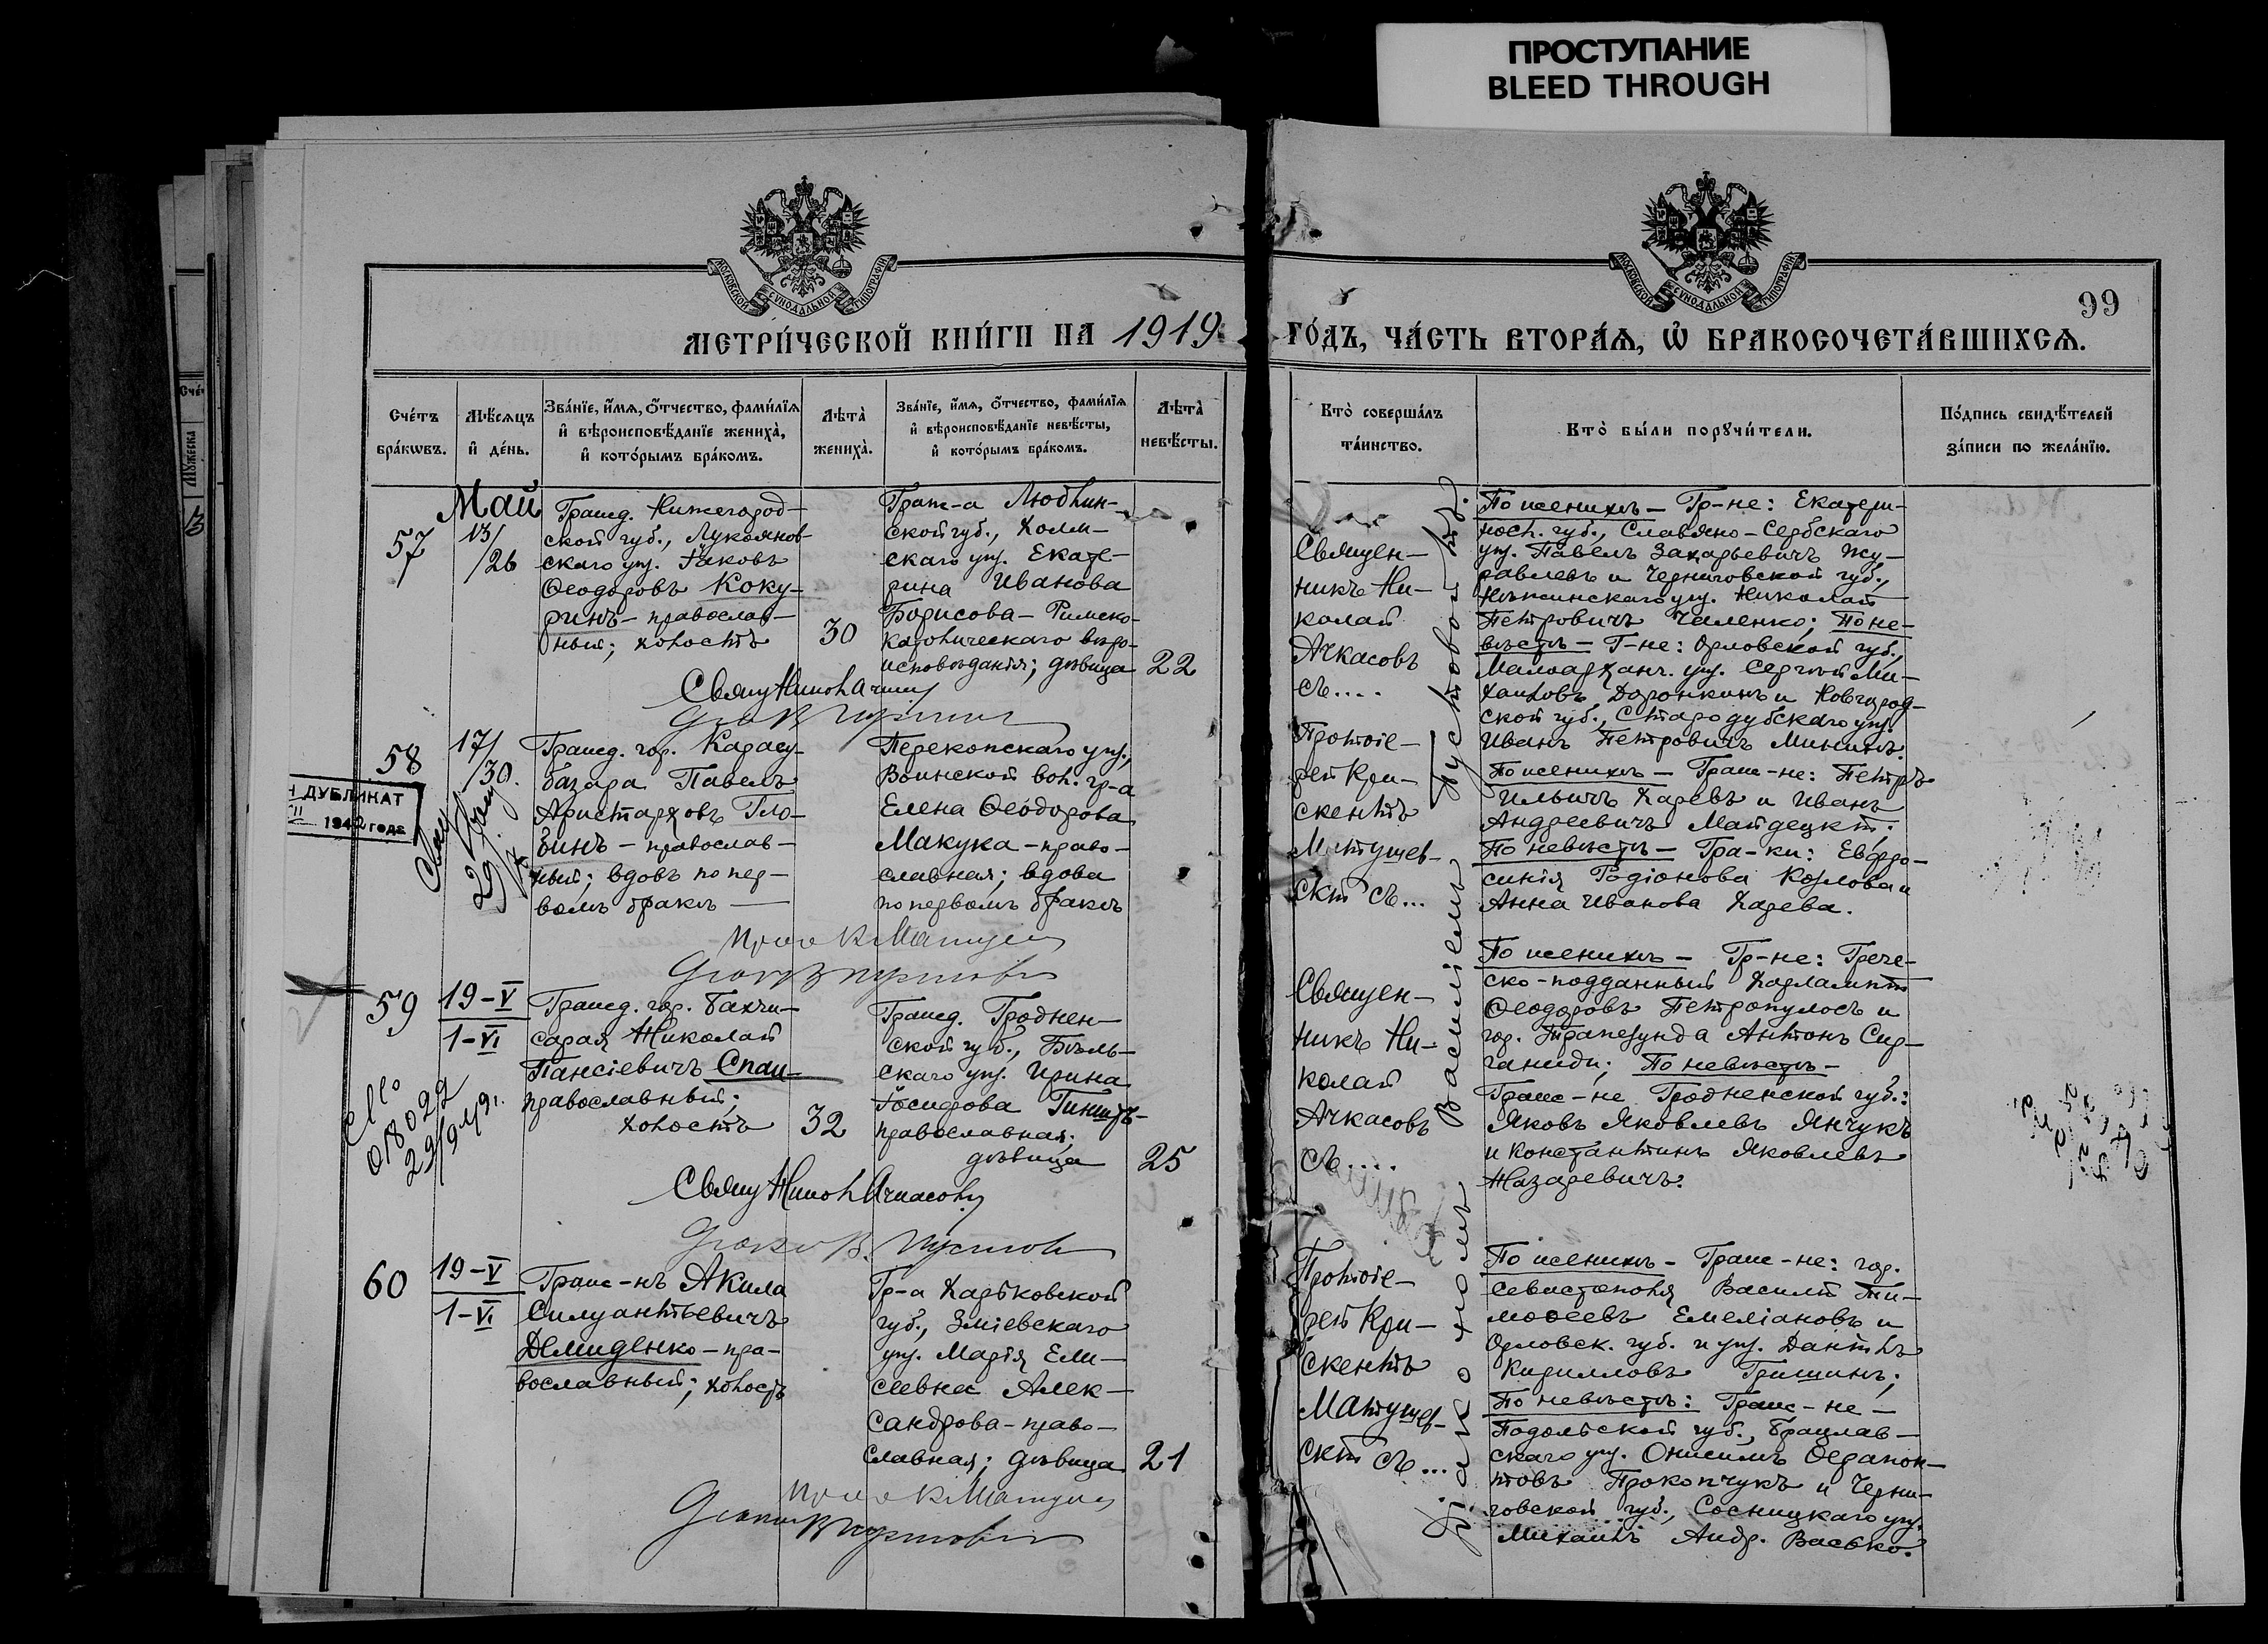 ПРОСТУПАНИЕ
BLEED THROUGH
МОСКОВСКОЙ СУНОДАЛЬНОЙ ТИПОГРАФІИ
МОСКОВСКОЙ СУНОДАЛЬНОЙ ТИПОГРАФІИ
99
МЕТРИ́ЧЕСКОЙ КНИ́ГИ НА 1919
ГО́ДЪ, ЧА́СТЬ ВТОРА́Я, Ѡ БРАКОСОЧЕТА́ВШИХСЯ.
Сче́тъ
бра́кѡвъ.
Мѣ́сяцъ
и҆ де́нь.
Зва́нїе, и҆́мя, ѻ҆́тчество, фами́лїя
и҆ вѣроисповѣ́данїе жениха̀,
и҆ кото́рымъ бра́комъ.
Лѣта̀
жениха̀.
Зва́нїе, и҆́мя, ѻ҆́тчество, фами́лїя
и҆ вѣроисповѣ́данїе невѣ́сты,
и҆ кото́рымъ бра́комъ.
Лѣта̀
невѣ́сты.
Кто̀ соверша́лъ
та́инство.
Кто̀ бы́ли порꙋчи́тели.
По́дпись свидѣ́телей
за́писи по жела́нїю.
57
Май
13/
/26
Гражд. Нижегород-
ской губ., Лукоянов-
скаго уѣз. Іаковъ
Ѳеодоровъ Коку-
ринъ - православ-
ный; холостъ
30
Граж-а Люблин-
ской губ., Холм-
скаго уѣз. Екате-
рина Иванова
Борисова - Римско-
католическаго вѣро-
исповѣданія; дѣвица
22
Священ-
никъ Ни-
колай
Ачкасовъ
съ....
По женихѣ - Гр-не: Екатери-
носл. губ., Славяно-Сербскаго
уѣз. Павелъ Захарьевичъ Жу-
равлевъ и Черниговской губ.,
Нѣжинскаго уѣз. Николай
Петровичъ Чаленко; По не-
вѣстѣ - Г-не: Орловской губ.,
Малоархан. уѣз. Сергѣй Ми-
хаиловъ Доронкинъ и Новгород-
ской губ., Стародубскаго уѣз.
Иванъ Петровичъ Мининъ.
58
17/
/30.
Гражд. гор. Карасу-
базара Павелъ
Аристарховъ Гло-
бинъ - православ-
ный; вдовъ по пер-
вомъ бракѣ
Перекопскаго уѣз.,
Воинской вол. гр-а
Елена Ѳеодорова
Макука - право-
славная; вдова
по первомъ бракѣ
Протоіе-
рей Кри-
скентъ
Матушев-
скій съ...
По женихѣ - Граж-не: Петръ
Ильичъ Харевъ и Иванъ
Андреевичъ Майдецкій;
По невѣстѣ - Гра-ки: Евфро-
синія Родіонова Козлова и
Анна Иванова Харева.
ДУБЛИКАТ
II 1942 года
59
19-V
1-VI
Гражд. гор. Бахчи-
сарая Николай
Паисіевичъ Спаи-
православный;
холостъ
32
Гражд. Гроднен-
ской губ., Бѣль-
скаго уѣз. Ирина
Іосифова
православная;
дѣвица
25
Священ-
никъ Ни-
колай
Ачкасовъ
съ....
По женихѣ - Гр-не: Грече-
ско-подданный Харлампій
Ѳеодоровъ Петропулосъ и
гор. Трапезунда Антонъ Сир-
ганиди; По невѣстѣ -
Граж-не Гродненской губ.:
Яковъ Яковлевъ Янчукъ
и Константинъ Яковлевъ
Назаревичъ.
018022
60
19-V
1-VI
Граж-нъ Акила
Силуантьевичъ
Демиденко - пра-
вославный; холостъ
Гр-а Харьковской
губ., Зміевскаго
уѣз. Марія Ели-
сеевна Алек-
сандрова - право-
славная; дѣвица
21
Протоіе-
рей Кри-
скентъ
Матушев-
скій съ...
По женихѣ - Граж-не: гор.
Севастополя Василій Ти-
моѳеевъ Емеліановъ и
Орловск. губ. и уѣз. Даніилъ
Кирилловъ Гришинъ;
По невѣстѣ: Граж-не -
Подольской губ., Брацлав-
скаго уѣз. Онисимъ Ѳерапон-
товъ Прокопчукъ и Черни-
говской губ., Сосницкаго уѣз.
Михаилъ Андр. Васько.
Діакономъ Василіемъ Пустовымъ.